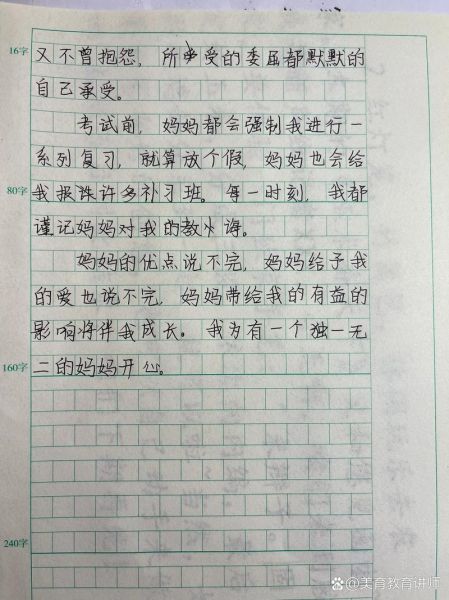 16字
又不曾抱怨，所承受的委屈都默默的
自己承受。
考试前，妈妈都会强制我进行一
系列复习，就算放个假，妈妈也会给
80字
我报许多补习班。每一时刻，我都
谨记妈妈对我的教诲。
妈妈的优点说不完，妈妈给予我
的爱也说不完，妈妈带给我的有益的
影响将伴我成长。我为有一个独一无
160字
二的妈妈开心。
240字
@美育教育讲师